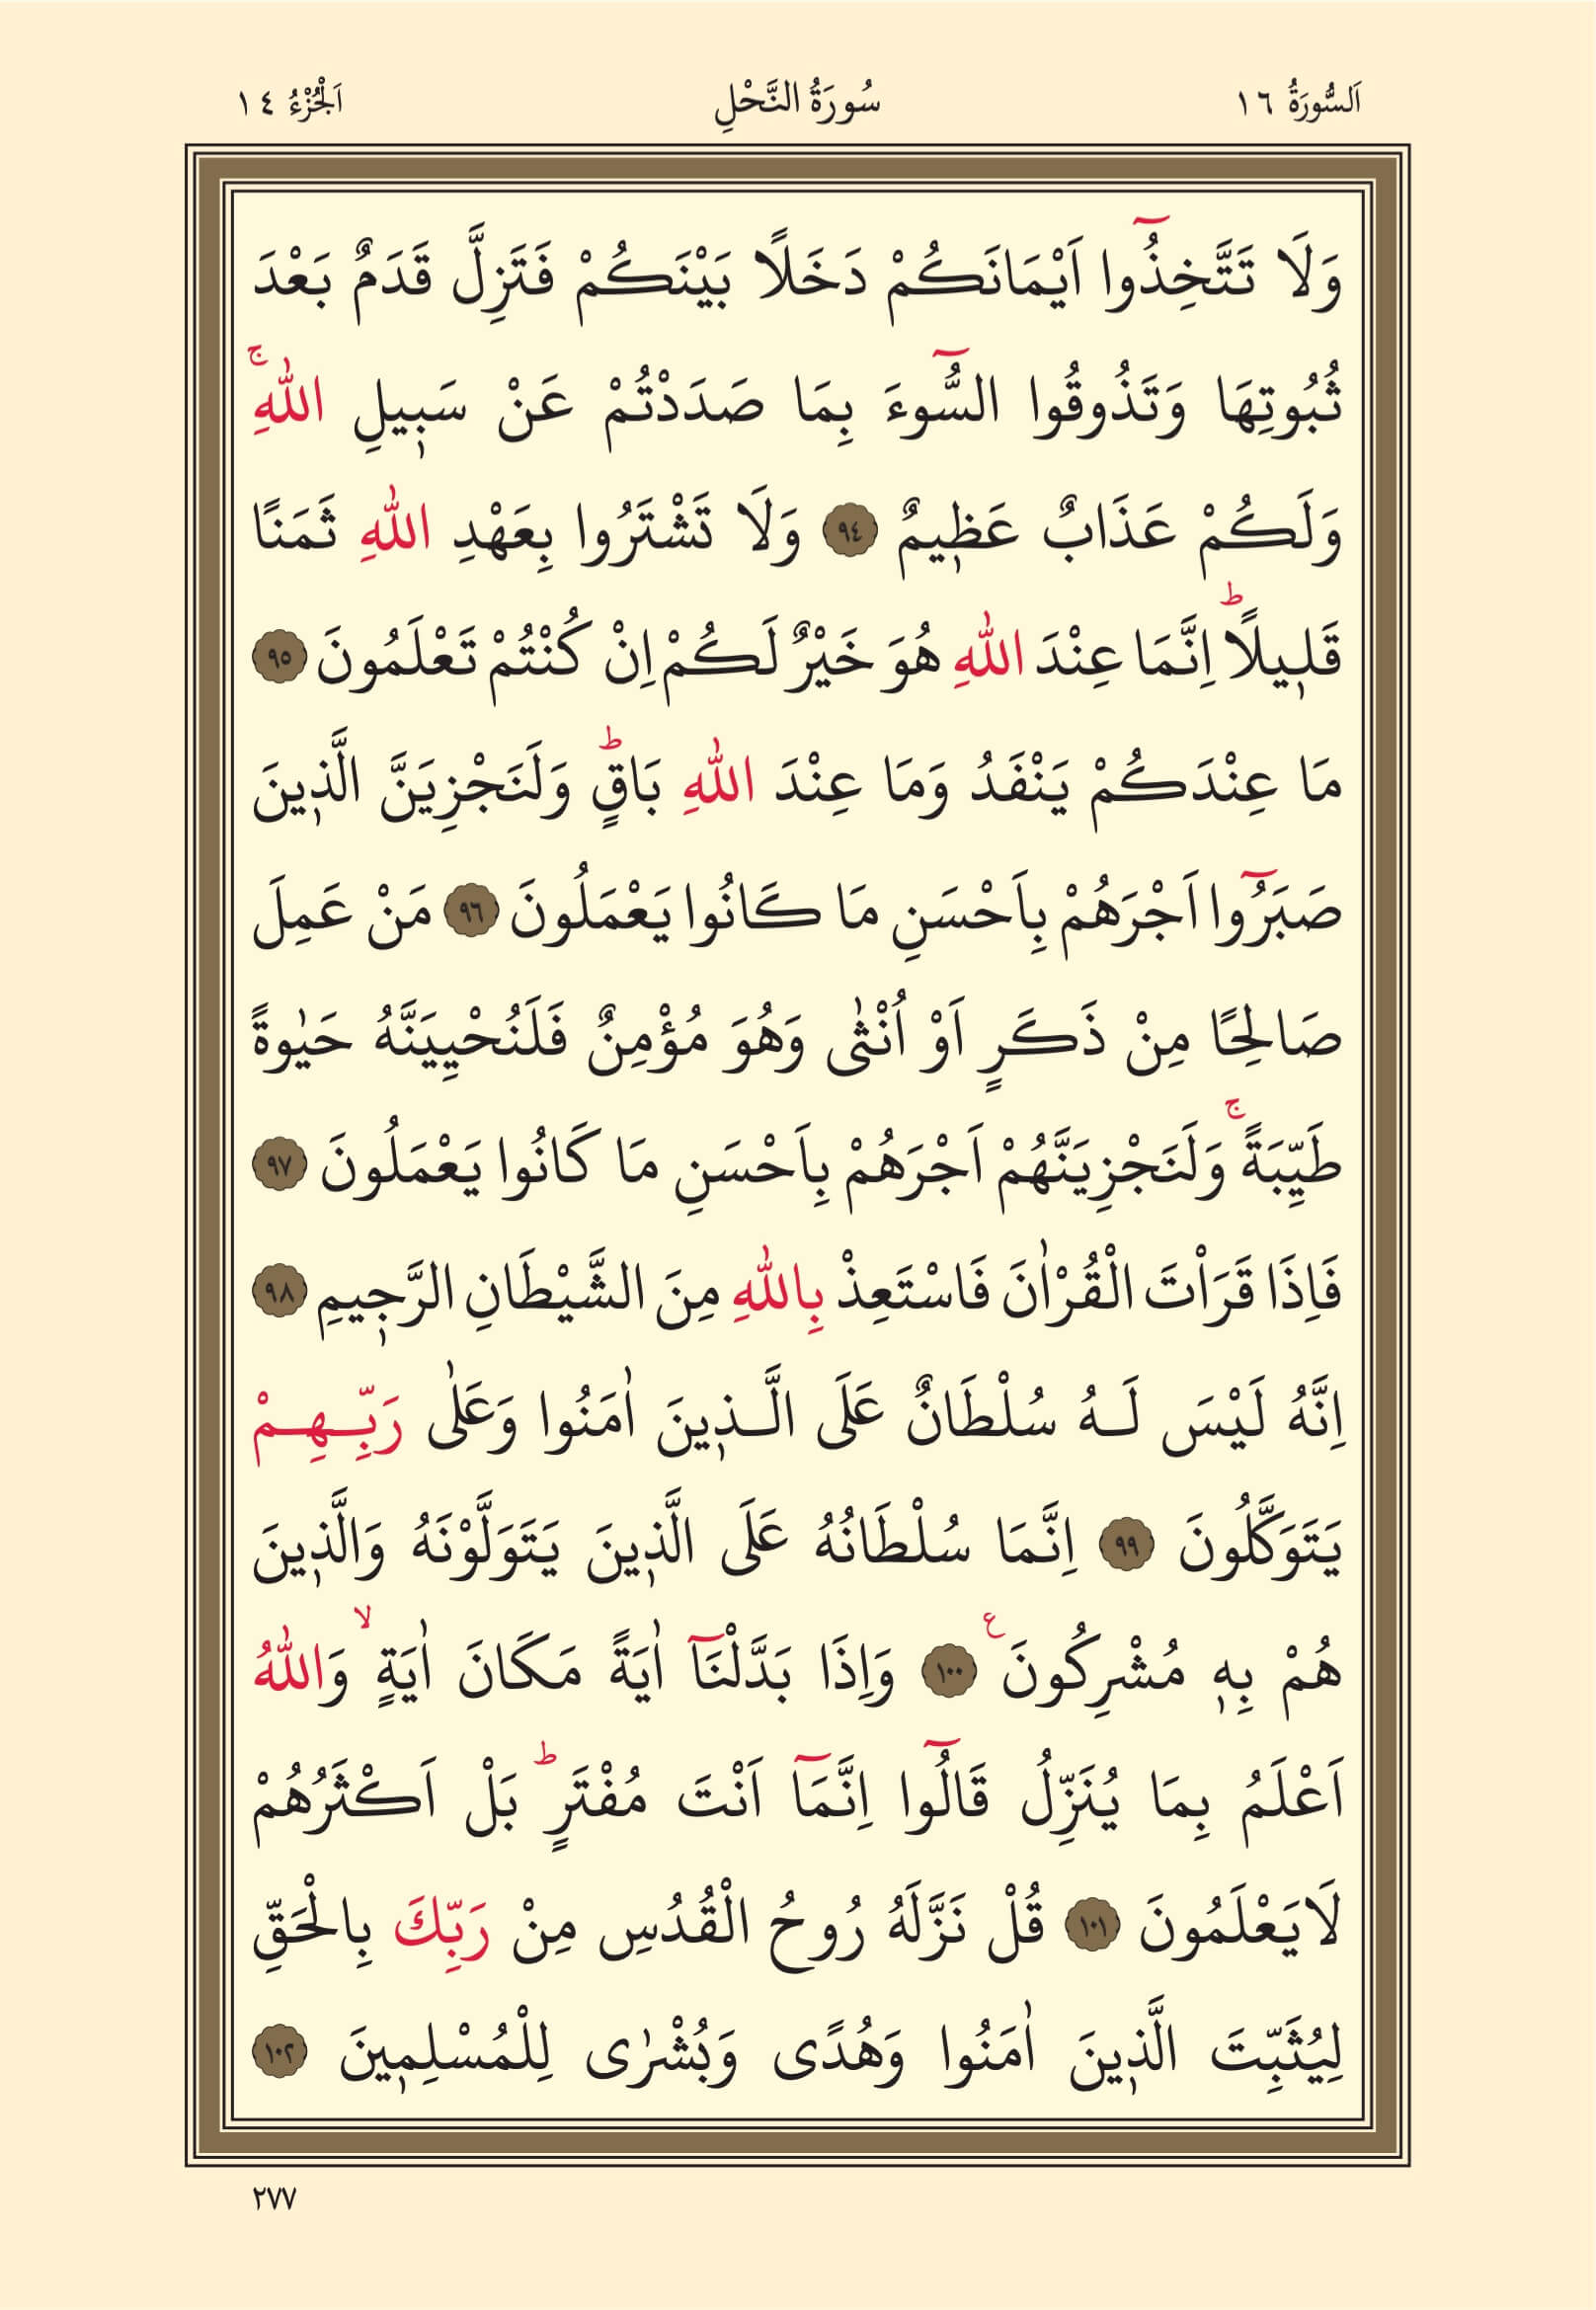 اَلسُّورَةُ ١٦ سُورَةُ النَّحْلِ اَلْجُزْءُ ١٤
وَلَا تَتَّخِذُٓوا اَيْمَانَكُمْ دَخَلًا بَيْنَكُمْ فَتَزِلَّ قَدَمٌ بَعْدَ
ثُبُوتِهَا وَتَذُوقُوا السُّٓوءَ بِمَا صَدَدْتُمْ عَنْ سَب۪يلِ اللّٰهِۚ
وَلَكُمْ عَذَابٌ عَظ۪يمٌ ﴿٩٤﴾ وَلَا تَشْتَرُوا بِعَهْدِ اللّٰهِ ثَمَنًا
قَل۪يلًاۜ اِنَّمَا عِنْدَ اللّٰهِ هُوَ خَيْرٌ لَكُمْ اِنْ كُنْتُمْ تَعْلَمُونَ ﴿٩٥﴾
مَا عِنْدَكُمْ يَنْفَدُ وَمَا عِنْدَ اللّٰهِ بَاقٍۜ وَلَنَجْزِيَنَّ الَّذ۪ينَ
صَبَرُٓوا اَجْرَهُمْ بِاَحْسَنِ مَا كَانُوا يَعْمَلُونَ ﴿٩٦﴾ مَنْ عَمِلَ
صَالِحًا مِنْ ذَكَرٍ اَوْ اُنْثٰى وَهُوَ مُؤْمِنٌ فَلَنُحْيِيَنَّهُ حَيٰوةً
طَيِّبَةًۚ وَلَنَجْزِيَنَّهُمْ اَجْرَهُمْ بِاَحْسَنِ مَا كَانُوا يَعْمَلُونَ ﴿٩٧﴾
فَاِذَا قَرَاْتَ الْقُرْاٰنَ فَاسْتَعِذْ بِاللّٰهِ مِنَ الشَّيْطَانِ الرَّج۪يمِ ﴿٩٨﴾
اِنَّهُ لَيْسَ لَـهُ سُلْطَانٌ عَلَى الَّـذ۪ينَ اٰمَنُوا وَعَلٰى رَبِّـهِـمْ
يَتَوَكَّلُونَ ﴿٩٩﴾ اِنَّمَا سُلْطَانُهُ عَلَى الَّذ۪ينَ يَتَوَلَّوْنَهُ وَالَّذ۪ينَ
هُمْ بِه۪ مُشْرِكُونَ۟ ﴿١٠٠﴾ وَاِذَا بَدَّلْنَٓا اٰيَةً مَكَانَ اٰيَةٍۙ وَاللّٰهُ
اَعْلَمُ بِمَا يُنَزِّلُ قَالُٓوا اِنَّمَٓا اَنْتَ مُفْتَرٍۜ بَلْ اَكْثَرُهُمْ
لَا يَعْلَمُونَ ﴿١٠١﴾ قُلْ نَزَّلَهُ رُوحُ الْقُدُسِ مِنْ رَبِّكَ بِالْحَقِّ
لِيُثَبِّتَ الَّذ۪ينَ اٰمَنُوا وَهُدًى وَبُشْرٰى لِلْمُسْلِم۪ينَ ﴿١٠٢﴾
٢٧٧